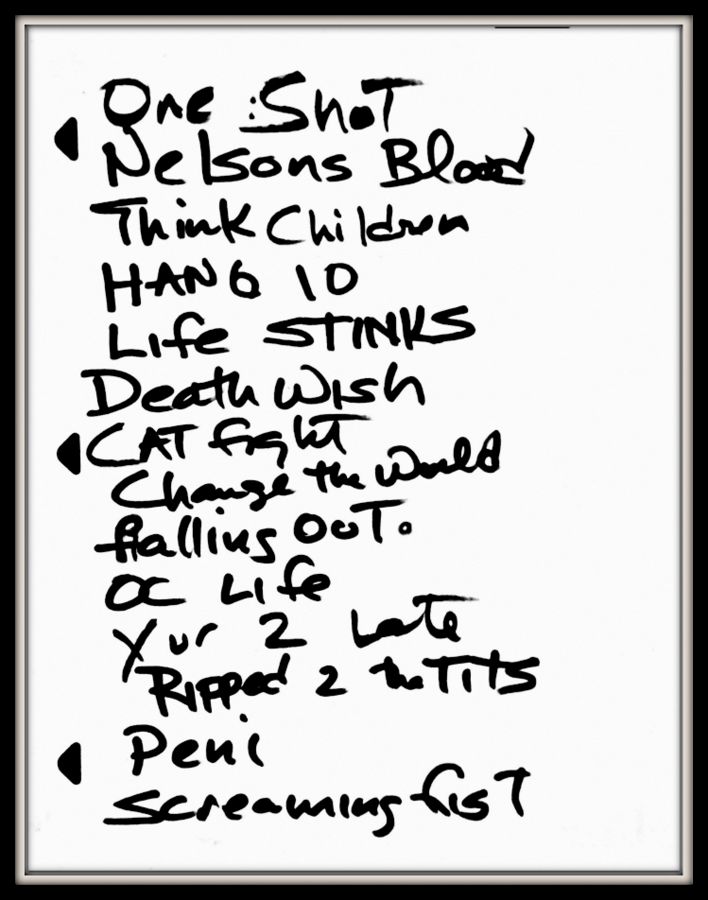 One Shot
Nelsons Blood
Think Children
HANG 10
Life STINKS
Death Wish
CAT fight
Change the World
falling OuT.
OC Life
Yur 2 Late
Ripped 2 the TITS
Peni
Screaming fisT